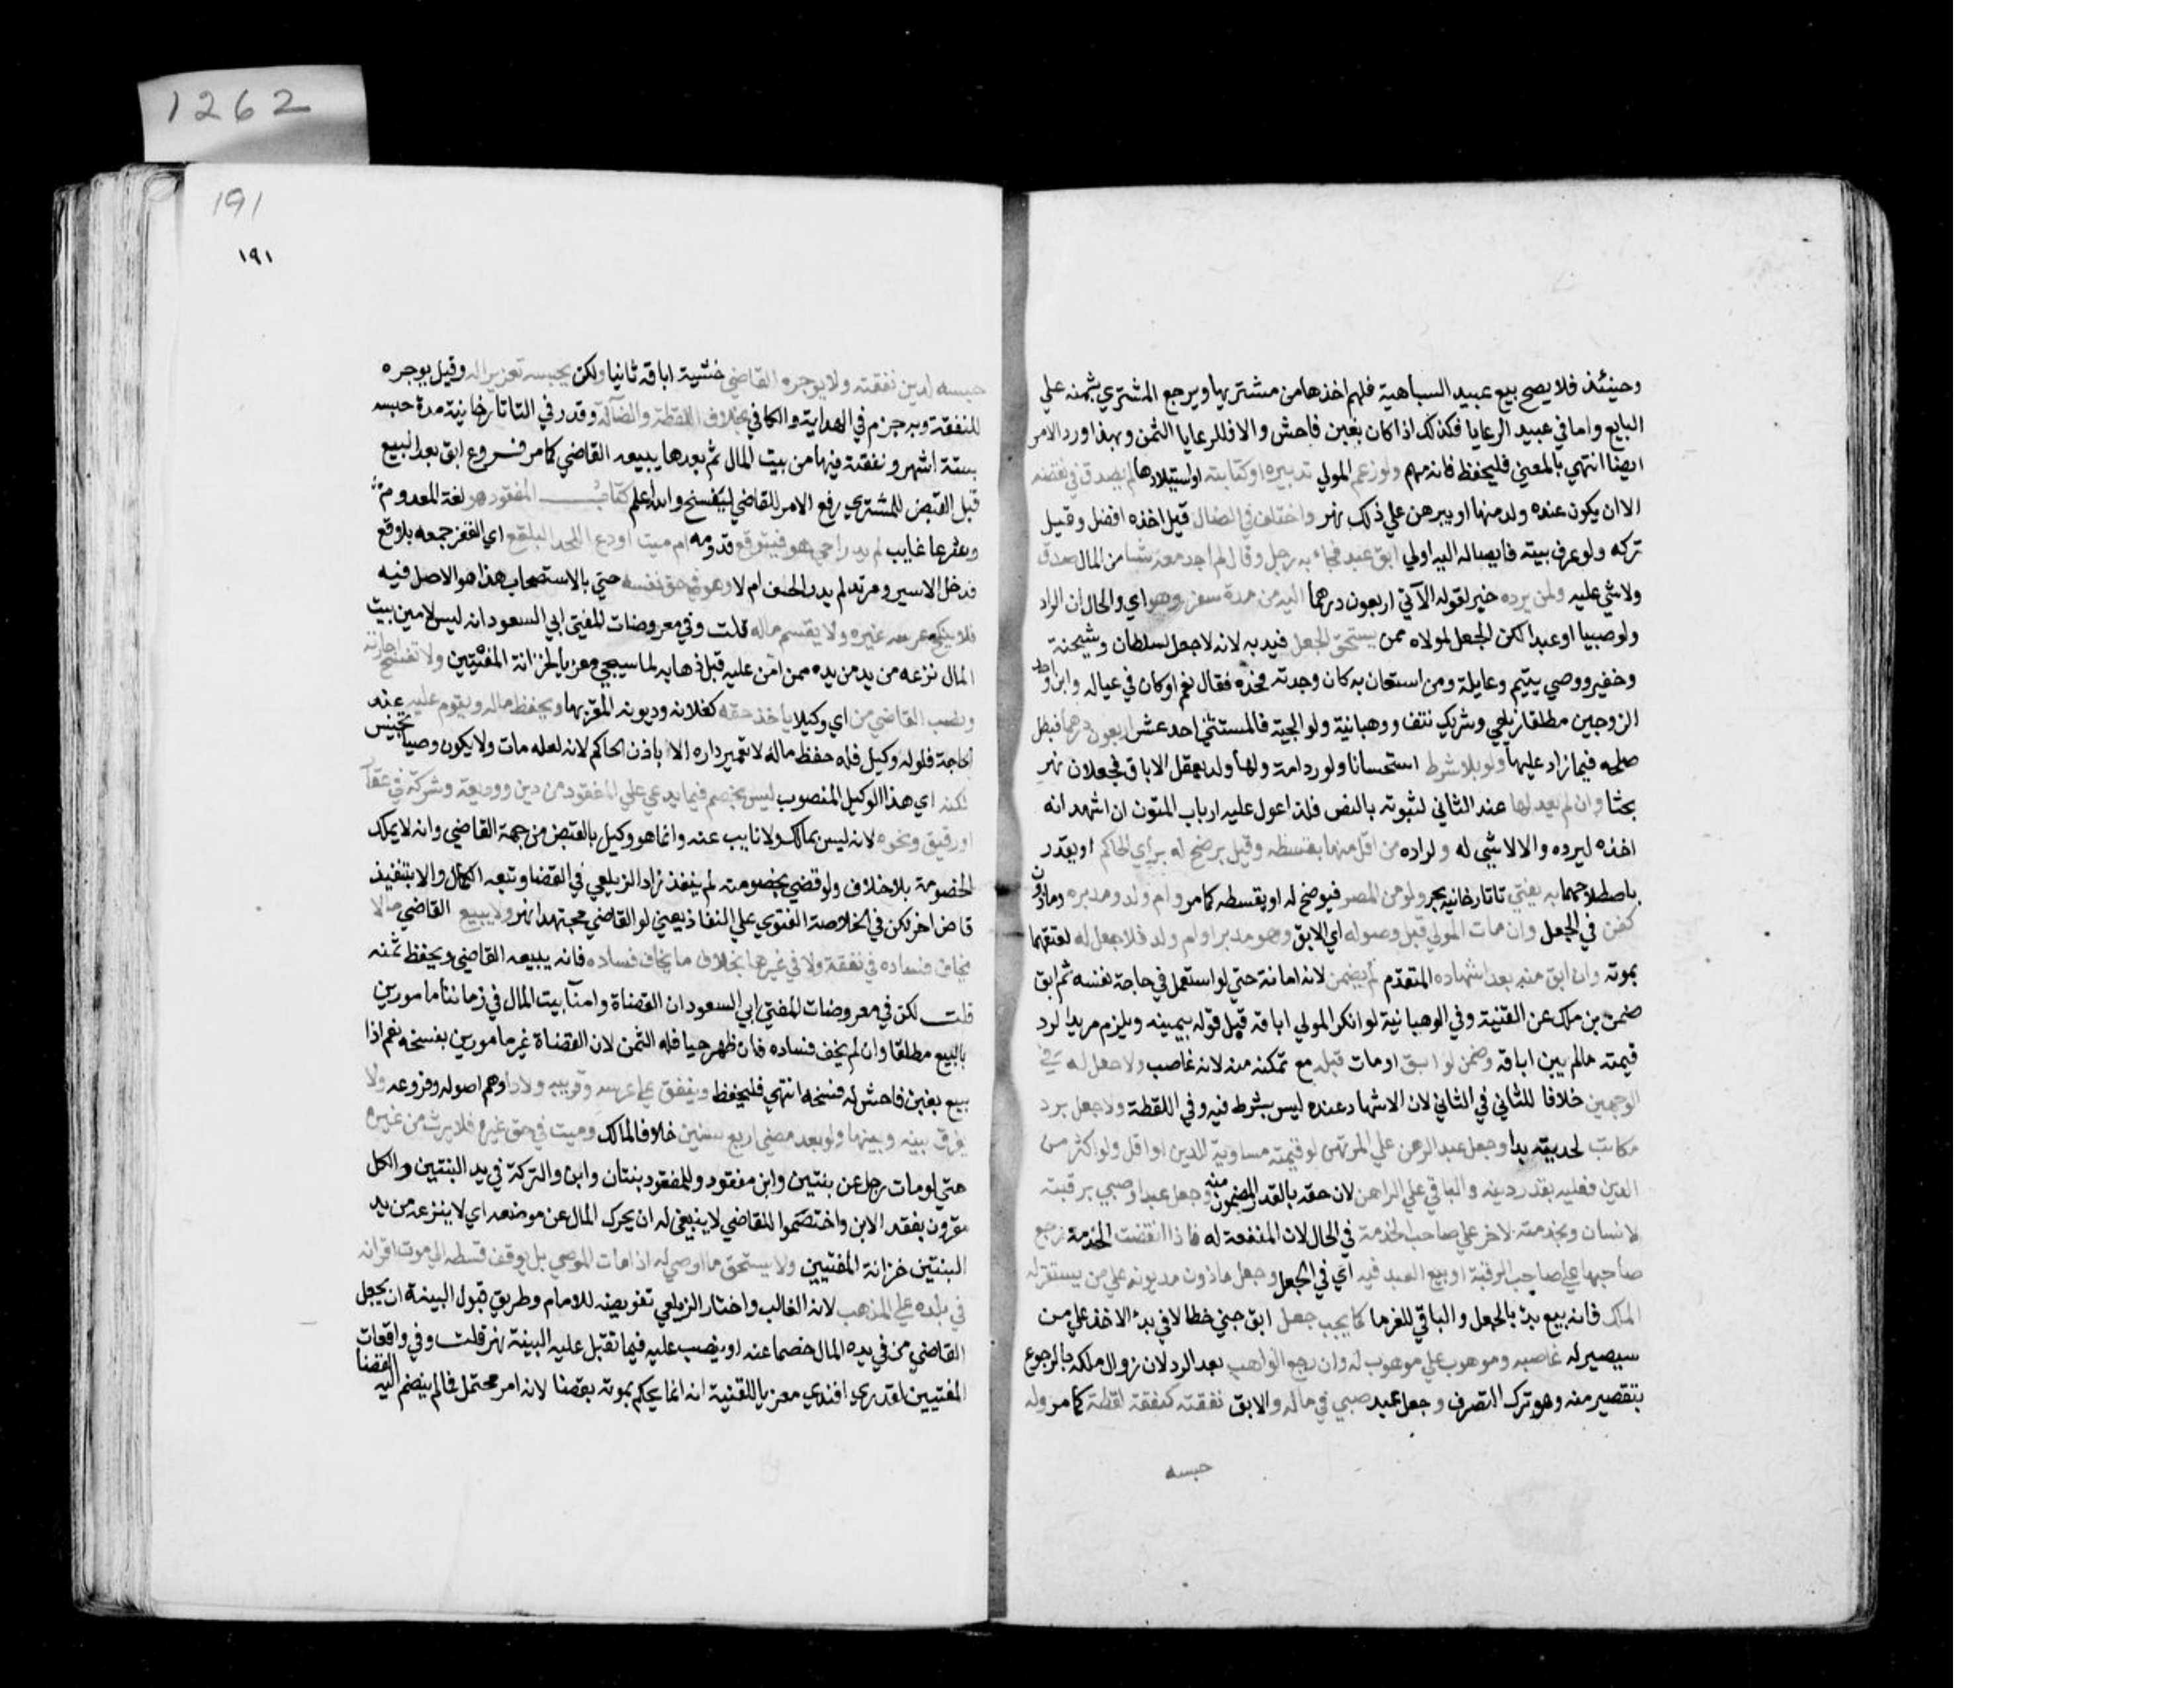 وحينئذ فلا يصح بيع عبيد السباهية فلهم اخذها من مشتريها ويرجع المشتري بثمنه علي
البايع واما في عبيد الرعايا فكذلك اذا كان بغبن فاحش والا فللرعايا الثمن وبهذا ورد الامر
ايضا انتهي بالمعني فليحفظ فانه مهم ولو زعم المولي تدبيره او كتابته او استيلادها لم يصدق في نقضه
الا ان يكون عنده ولد منها او يبرهن علي ذلك نهر واختلف في الضال قيل اخذه افضل وقيل
تركه ولو عرف بيته فايصاله اليه اولي ابق عبد فجاء به رجل وقال لم اجد معه شيا من المال صدق
ولا شي عليه ولمن يرده خبر لقوله الآتي اربعون درهما اليه من مدة سفر وهو اي والحال ان الراد
ولو صبيا او عبدا لكن الجعل لمولاه ممن يستحق الجعل قيد به لانه لا جعل لسلطان وشحنة
وخفير ووصي يتيم وعايلة ومن استعان به كان وجدته فخذه فقال نعم او كان في عياله وابن واحد
الزوجين مطلقا زيلعي وشريك نتف ووهبانية ولوالجية فالمستثني احد عشر اربعون درهما فبطل
صلحه فيما زاد عليها ولو بلا شرط استحسانا ولو رد امة ولها ولد يعقل الاباق فجعلان نهر
بحثا وان لم يعدلها عند الثاني لثبوته بالنص فلذا عول عليه ارباب المتون ان اشهد انه
اخذه ليرده والا لا شي له ولراده من اقل منها بقسطه وقيل يرضخ له برأي الحاكم او يقدر
باصطلاحهما به يفتي تاتارخانيه بحر ولو من المصر فيرضخ له او يقسطه كما مر وام ولد ومدبره وماذون
كقن في الجعل وان مات المولي قبل وصوله اي الابق وهو مدبر او ام ولد فلا جعل له لعتقهما
بموته وان ابق منه بعد اشهاده المتقدم لم يضمن لانه امانة حتي لو استعمل في حاجة نفسه ثم ابق
ضمن بن ملك عن القنية وفي الوهبانية لو انكر المولي اباقه قبل قوله بيمينه ويلزم مريدا لرد
قيمته مالم يبين اباقه وضمن لو ابق او مات قبله مع تمكنه منه لانه غاصب ولا جعل له في
الوجهين خلافا للثاني في الثاني لان الاشهاد عنده ليس بشرط فيه وفي اللقطة ولا جعل برد
مكاتب لحريته يدا وجعل عبد الرهن علي المرتهن لو قيمته مساوية للدين او اقل ولو اكثر من
الدين فعليه بقدر دينه والباقي علي الراهن لان حقه بالقدر المضمون منه وجعل عبد اوصي برقبته
لانسان وبخدمته لاخر علي صاحب الخدمة في الحال لان المنفعة له فاذا انقضت الخدمة رجع
صاحبها علي صاحب الرقبة او بيع العبد فيه اي في الجعل وجعل ماذون مديونه علي من يستقر له
الملك فانه بيع بدئ بالجعل والباقي للغرما كما يجب جعل ابق جني خطا لا في يد الاخذ علي من
سيصير له غاصبه وموهوب علي موهوب له وان رجع الواهب بعد الرد لان زوال ملكه بالرجوع
بتقصير منه وهو ترك التصرف وجعل عبد صبي في ماله والابق نفقته كنفقة لقطة كما مر وله
حبسه
1262
191
١٩١
حبسه لدين نفقته ولا يوجره القاضي خشية اباقه ثانيا ولكن يحبسه تعزيرا له وقيل يوجره
للنفقة وبه جزم في الهداية والكافي بخلاف اللقطة والضالة وقدر في التاتارخانية مدة حبسه
بستة اشهر ونفقته فيها من بيت المال ثم بعدها يبيعه القاضي كما مر فروع ابق بعد البيع
قبل القبض للمشتري رفع الامر للقاضي ليفسخ والله اعلم كتاب المفقود هو لغة المعدوم
وشرعا غايب لم يدر احي هو فيتوقع قدومه ام ميت اودع اللحد البلقع اي القفر جمعه بلاقع
فدخل الاسير ومرتد لم يدر الحق ام لا وهو في حق نفسه حتي بالاستصحاب هذا هو الاصل فيه
فلا ينكح عرسه غيره ولا يقسم ماله قلت وفي معروضات المفتي ابي السعود انه ليس لامين بيت
المال نزعه من يد من بيده ممن امن عليه قبل ذهابه لما سيجي معزيا لخزانة المفتيين ولا تفسخ اجارته
ونصب القاضي من اي وكيلا ياخذ حقه كغلاته وديونه المقر بها ويحفظ ماله ويقوم عليه عند
الحاجة فلو له وكيل فله حفظ ماله لا تعمير داره الا باذن الحاكم لانه لعله مات ولا يكون وصيا تجنيس
لكنه اي هذا الوكيل المنصوب ليس بخصم فيما يدعي علي المفقود من دين ووديعة وشركة في عقار
او رقيق ونحوه لانه ليس بمالك ولا نايب عنه وانما هو وكيل بالقبض من جهة القاضي وانه لا يملك
الخصومة بلا خلاف ولو قضي بخصومته لم ينفذ زاد الزيلعي في القضا وتبعه الكمال والا بتنفيذ
قاض اخر لكن في الخلاصة الفتوي علي النفاذ يعني لو القاضي مجتهدا نهر ولا يبيع القاضي مالا
يخاف فساده في نفقة ولا في غيرها بخلاف ما يخاف فساده فانه يبيعه القاضي ويحفظ ثمنه
قلت لكن في معروضات المفتي ابي السعود ان القضاة وامنآ بيت المال في زماننا مامورين
بالبيع مطلقا وان لم يخف فساده فان ظهر حيا فله الثمن لان القضاة غير مامورين بفسخه نعم اذا
بيع بغبن فاحش له فسخه انتهي فليحفظ وينفق علي عرسه وقريبه ولادا وهم اصوله وفروعه ولا
يفرق بينه وبينها ولو بعد مضي اربع سنين خلافا لمالك وميت في حق غيره فلا يرث من غيره
حتي لو مات رجل عن بنتين وابن مفقود وللمفقود بنتان وابن والتركة في يد البنتين والكل
مقرون بفقد الابن واختصموا للقاضي لا ينبغي له ان يحرك المال عن موضعه اي لا ينزعه من يد
البنتين خزانة المفتيين ولا يستحق ما اوصي له اذا مات الموصي بل يوقف قسطه الي موت اقرانه
في بلده علي المذهب لانه الغالب واختار الزيلعي تفويضه للامام وطريق قبول البينة ان يجعل
القاضي من في يده المال خصما عنه او ينصب عليه فيما تقبل عليه البينة نهر قلت وفي واقعات
المفتيين لقدري افندي معزيا للقنية انه انما يحكم بموته بقضا لانه امر محتمل فما لم ينضم اليه القضا